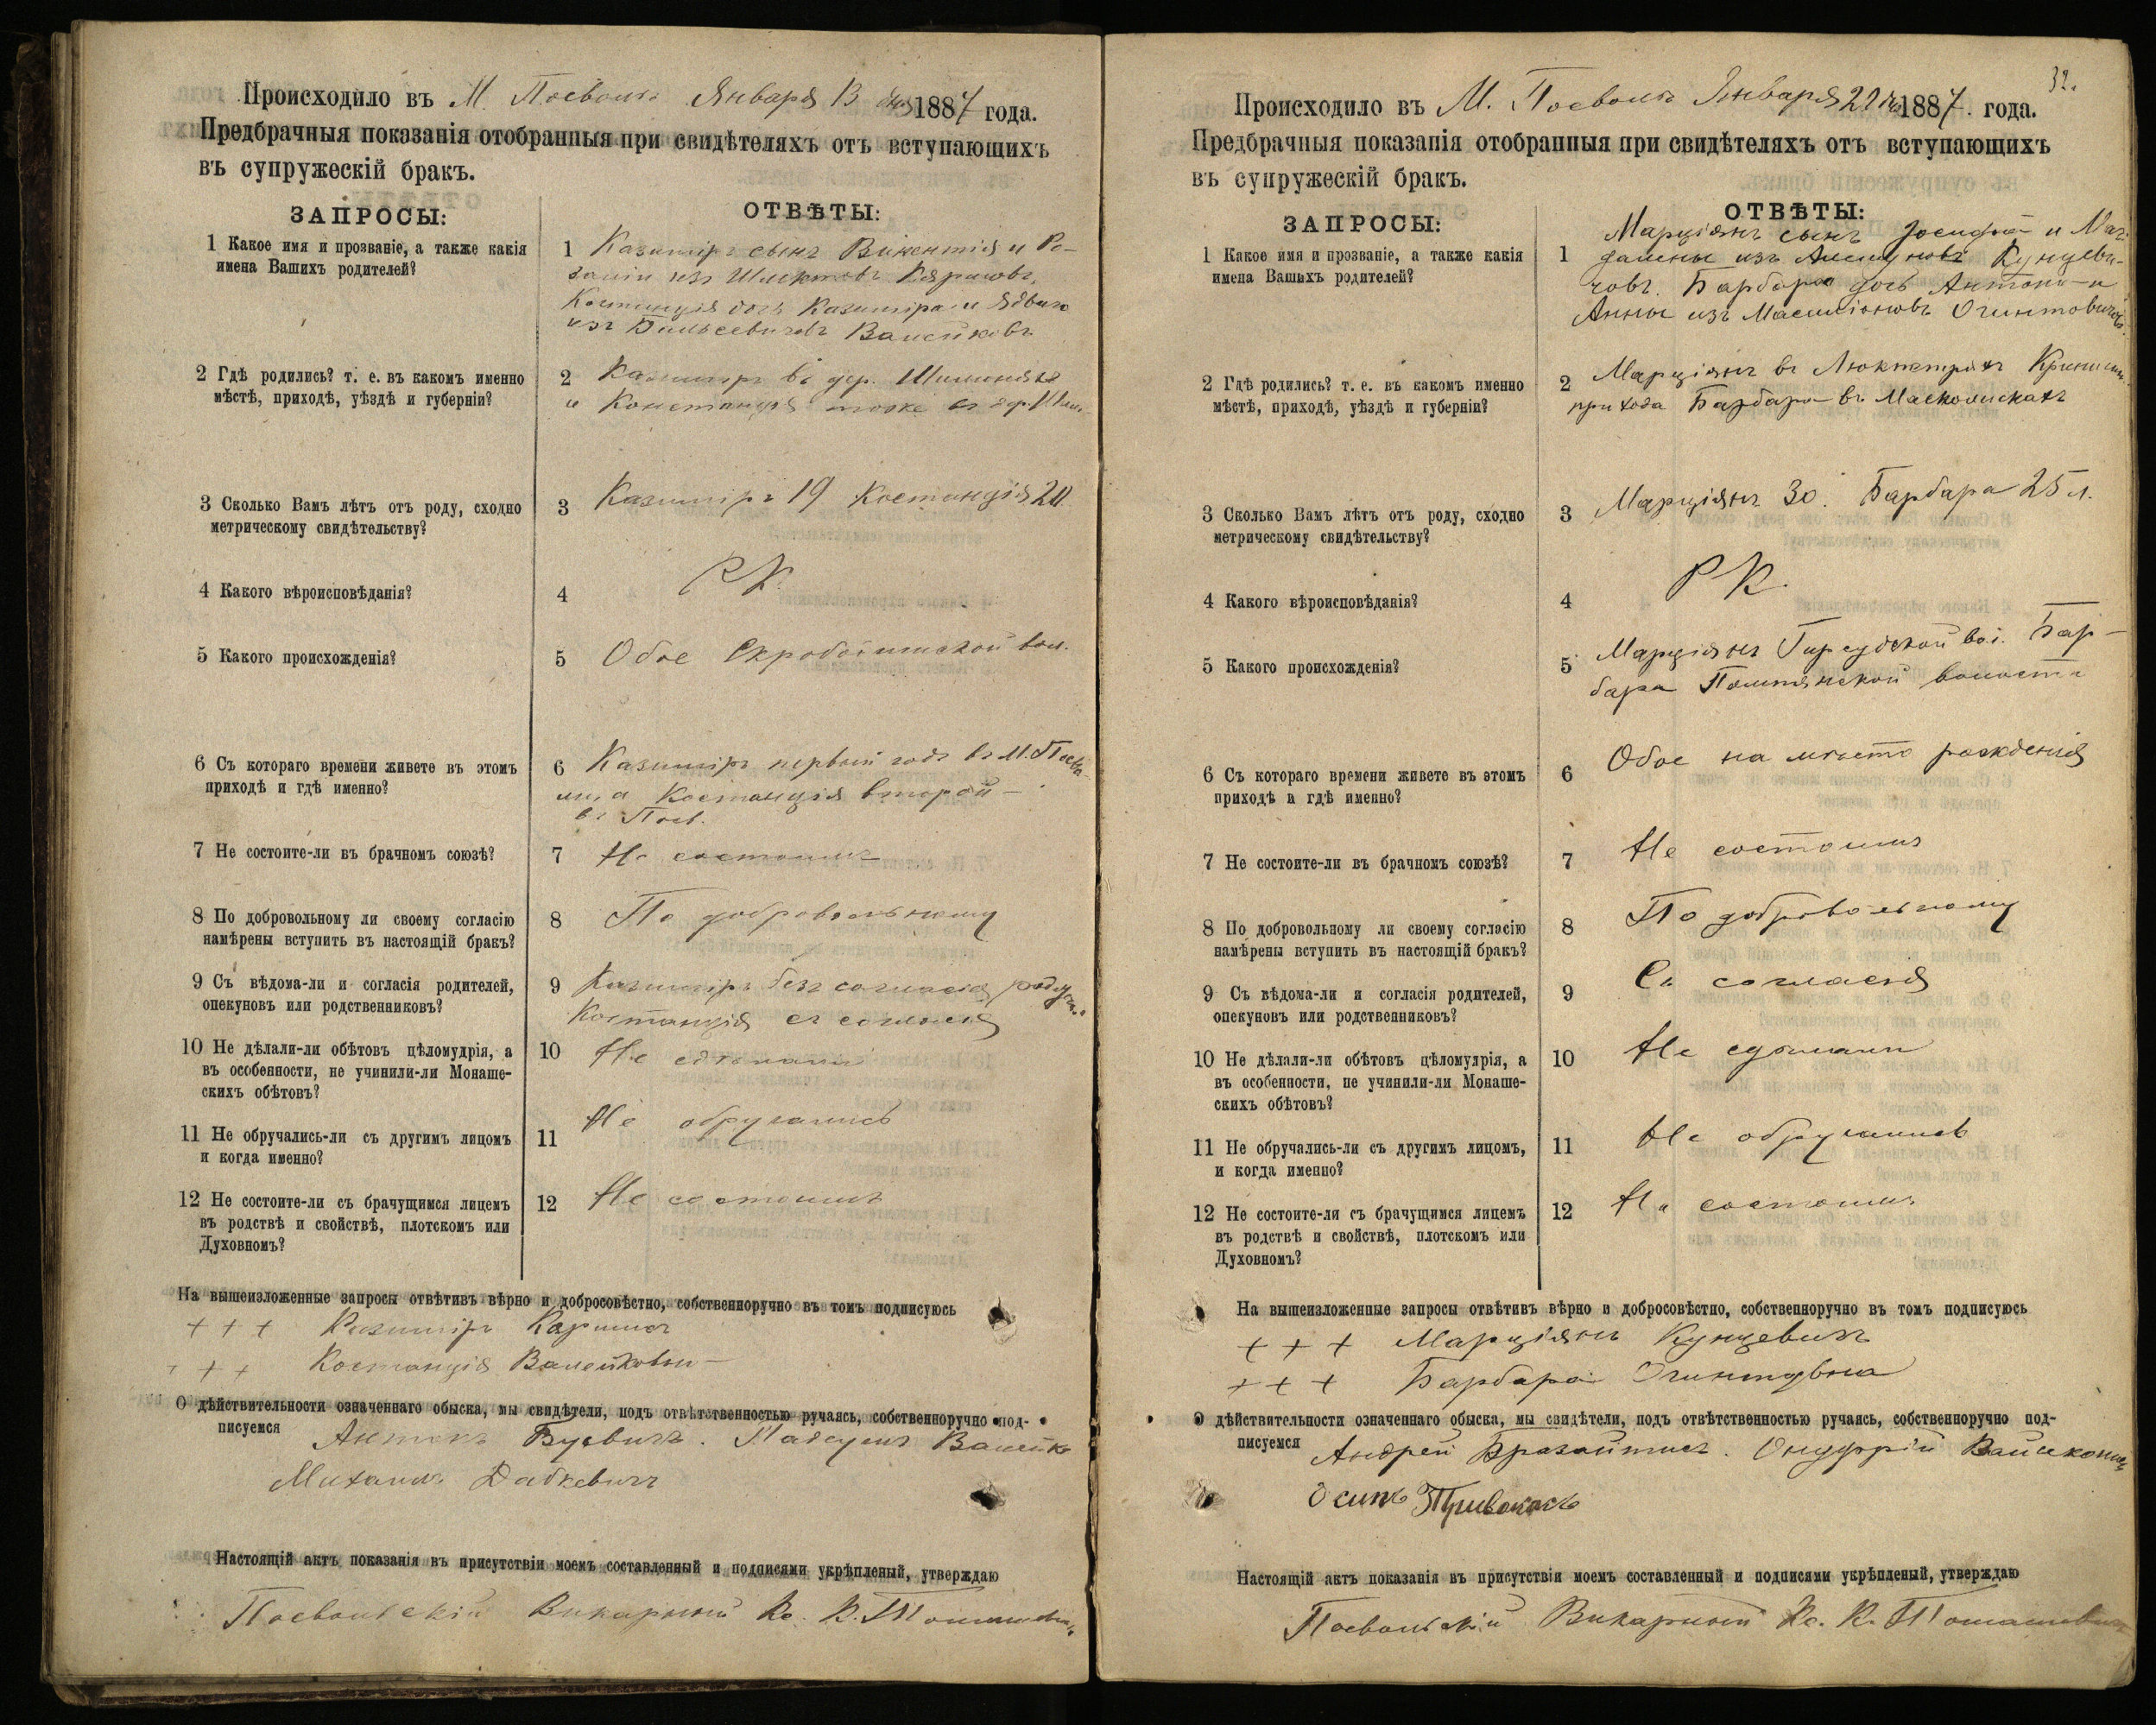 Происходило въ М. Посволь Января 13 дня 1887 года.
Предбрачныя показанія отобранныя при свидѣтеляхъ отъ вступающихъ
въ супружескій бракъ.
ЗАПРОСЫ:
ОТВѢТЫ:
1 Какое имя и прозваніе, а также какія
имена Вашихъ родителей?
1 Казиміръ сынъ Викентія и Ро-
заліи изъ
Костанція дочь Казиміра и Ядвиги
изъ Валейковъ
2 Гдѣ родились? т. е. въ какомъ именно
мѣстѣ, приходѣ, уѣздѣ и губерніи?
2 Казиміръ въ дер.
и Констанція тоже въ дер.
3 Сколько Вамъ лѣтъ отъ роду, сходно
метрическому свидѣтельству?
3 Казиміръ 19 Костанція 20
4 Какого вѣроисповѣданія?
4 РК.
5 Какого происхожденія?
5 Обое вол.
6 Съ котораго времени живете въ этомъ
приходѣ и гдѣ именно?
6 Казиміръ первый годъ въ М. Посво-
лѣ, а Костанція второй
въ Посв.
7 Не состоите-ли въ брачномъ союзѣ?
7 Не состоимъ
8 По добровольному ли своему согласію
намѣрены вступить въ настоящій бракъ?
8 По добровольному
9 Съ вѣдома-ли и согласія родителей,
опекуновъ или родственниковъ?
9 Казиміръ безъ согласія
Костанція съ согласія
10 Не дѣлали-ли обѣтовъ цѣломудрія, а
въ особенности, не учинили-ли Монаше-
скихъ обѣтовъ?
10 Не сдѣлали
11 Не обручались-ли съ другимъ лицомъ
и когда именно?
11 Не обручались
12 Не состоите-ли съ брачущимся лицемъ
въ родствѣ и свойствѣ, плотскомъ или
Духовномъ?
12 Не состоимъ
На вышеизложенные запросы отвѣтивъ вѣрно и добросовѣстно, собственноручно въ томъ подписуюсь
+ + + Казиміръ
+ + + Костанція
О дѣйствительности означеннаго обыска, мы свидѣтели, подъ отвѣтственностью ручаясь, собственноручно под-
писуемся Антонъ Валейко
Михаилъ
Настоящій актъ показанія въ присутствіи моемъ составленный и подписями укрѣпленый, утверждаю
Посвольскій Викарный Кс. К. Томашевичъ
32.
Происходило въ М. Посволь Января 1887 года.
Предбрачныя показанія отобранныя при свидѣтеляхъ отъ вступающихъ
въ супружескій бракъ.
ЗАПРОСЫ:
ОТВѢТЫ:
1 Какое имя и прозваніе, а также какія
имена Вашихъ родителей?
1 Марціянъ сынъ Іосифа и Маг-
далены изъ Кунцеви-
човъ. Барбара дочь Антона и
Анны изъ
2 Гдѣ родились? т. е. въ какомъ именно
мѣстѣ, приходѣ, уѣздѣ и губерніи?
2 Марціянъ въ
прихода Барбара въ
3 Сколько Вамъ лѣтъ отъ роду, сходно
метрическому свидѣтельству?
3 Марціянъ 30. Барбара 25 л.
4 Какого вѣроисповѣданія?
4 РК.
5 Какого происхожденія?
5 Марціянъ вол. Бар-
бара волости
6 Съ котораго времени живете въ этомъ
приходѣ и гдѣ именно?
6 Обое на мѣсто рожденія
7 Не состоите-ли въ брачномъ союзѣ?
7 Не состоимъ
8 По добровольному ли своему согласію
намѣрены вступить въ настоящій бракъ?
8 По добровольному
9 Съ вѣдома-ли и согласія родителей,
опекуновъ или родственниковъ?
9 Съ согласія
10 Не дѣлали-ли обѣтовъ цѣломудрія, а
въ особенности, не учинили-ли Монаше-
скихъ обѣтовъ?
10 Не сдѣлали
11 Не обручались-ли съ другимъ лицомъ,
и когда именно?
11 Не обручались
12 Не состоите-ли съ брачущимся лицемъ
въ родствѣ и свойствѣ, плотскомъ или
Духовномъ?
12 Не состоимъ
На вышеизложенные запросы отвѣтивъ вѣрно и добросовѣстно, собственноручно въ томъ подписуюсь
+ + + Марціянъ Кунцевичъ
+ + + Барбара
О дѣйствительности означеннаго обыска, мы свидѣтели, подъ отвѣтственностью ручаясь, собственноручно под-
писуемся Андрей Бразайтисъ. Онуфрій
Осипъ
Настоящій актъ показанія въ присутствіи моемъ составленный и подписями укрѣпленый, утверждаю
Посвольскій Викарный Кс. К. Томашевичъ